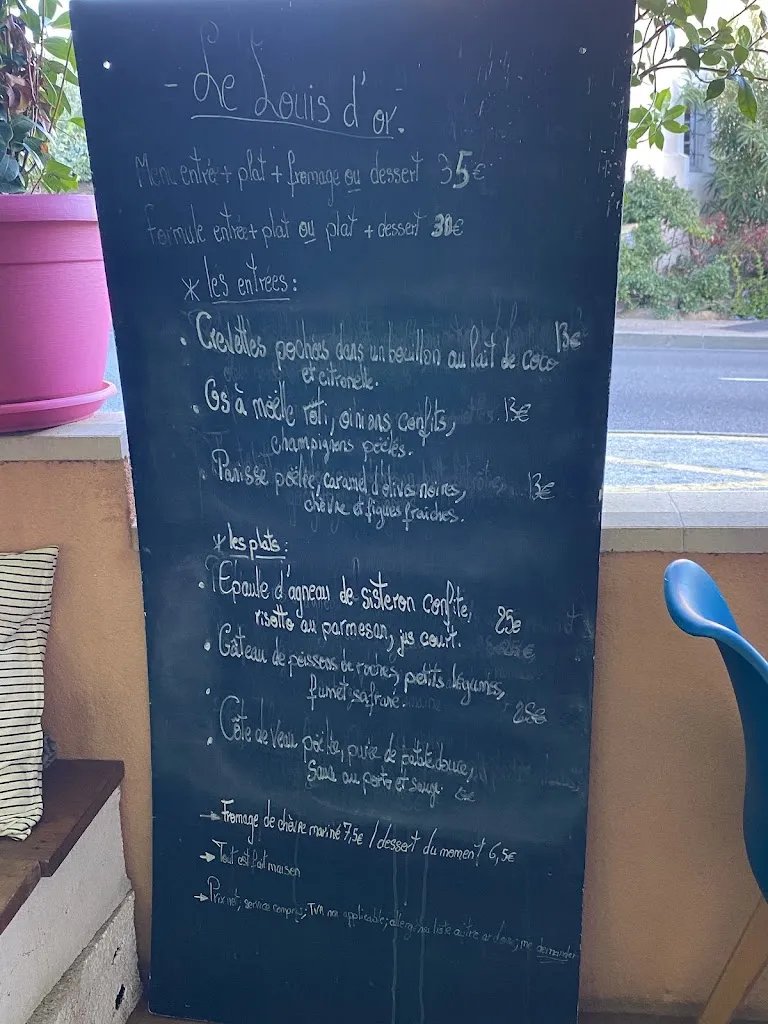 - Le Louis d'or.
Menu entrée + plat + fromage ou dessert 35€
Formule entrée + plat ou plat + dessert 30€
* les entrées:
. Crevettes pochées dans un bouillon au lait de coco 13€
et citronelle.
. Os à moëlle rôti, oinions confits, 13€
champignons poêlés.
. Panisse poêlée, caramel d'olives noires, 13€
chèvre et figues fraiches.
* les plats:
. Epaule d'agneau de sisteron confite, 25€
risotto au parmesan, jus court.
. Gâteau de poissons de roches, petits légumes,
fumet safrané. 25€
. Côte de veau poêlée, purée de patate douce,
au porto et sauge.
→ Fromage de chèvre mariné 7,5€ / dessert du moment 6,5€
→ Tout est fait maison
→ Prix net, service compris; TVA non applicable; me demander